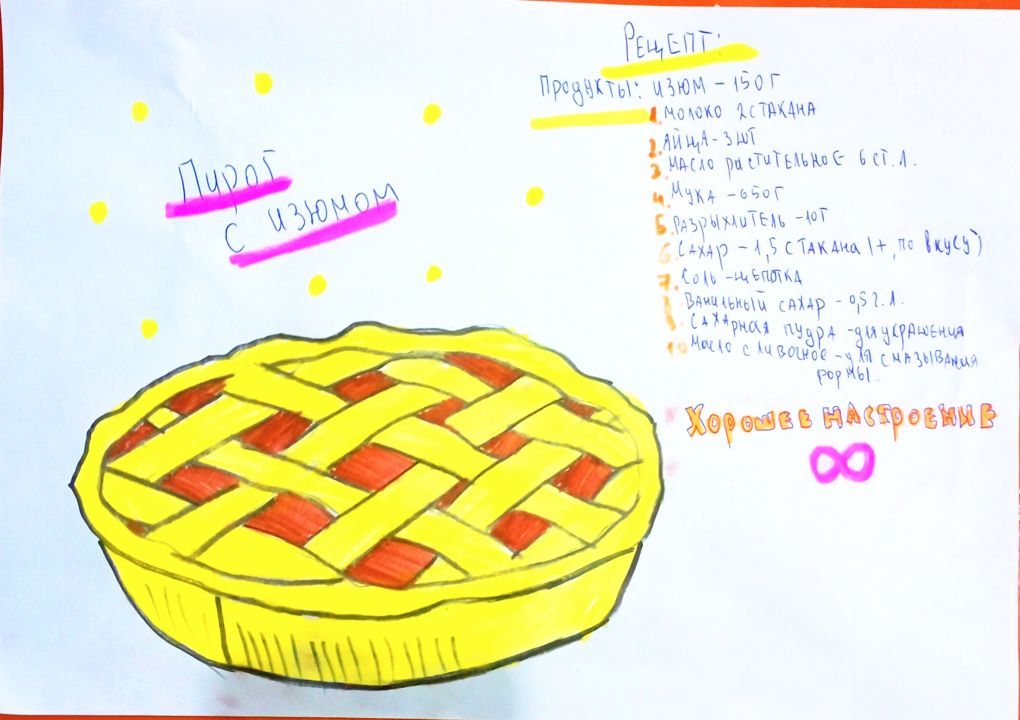 Пирог
с изюмом
Рецепт:
Продукты: изюм - 150г
1. Молоко 2 стакана
2. Айца - 3шт
3. Масло ристительное 6 ст.л.
4. Мука - 650г
5. Разрыхлитель - 10г
6. Сахар - 1,5 стакана (+, по вкусу)
7. Соль - щепотка
8. Ванильный сахар - 0,5 г.л.
9. Сахарная пудра - для украшения
10 Масло сливочное - для смазывания
формы.
Хорошее настроение
∞